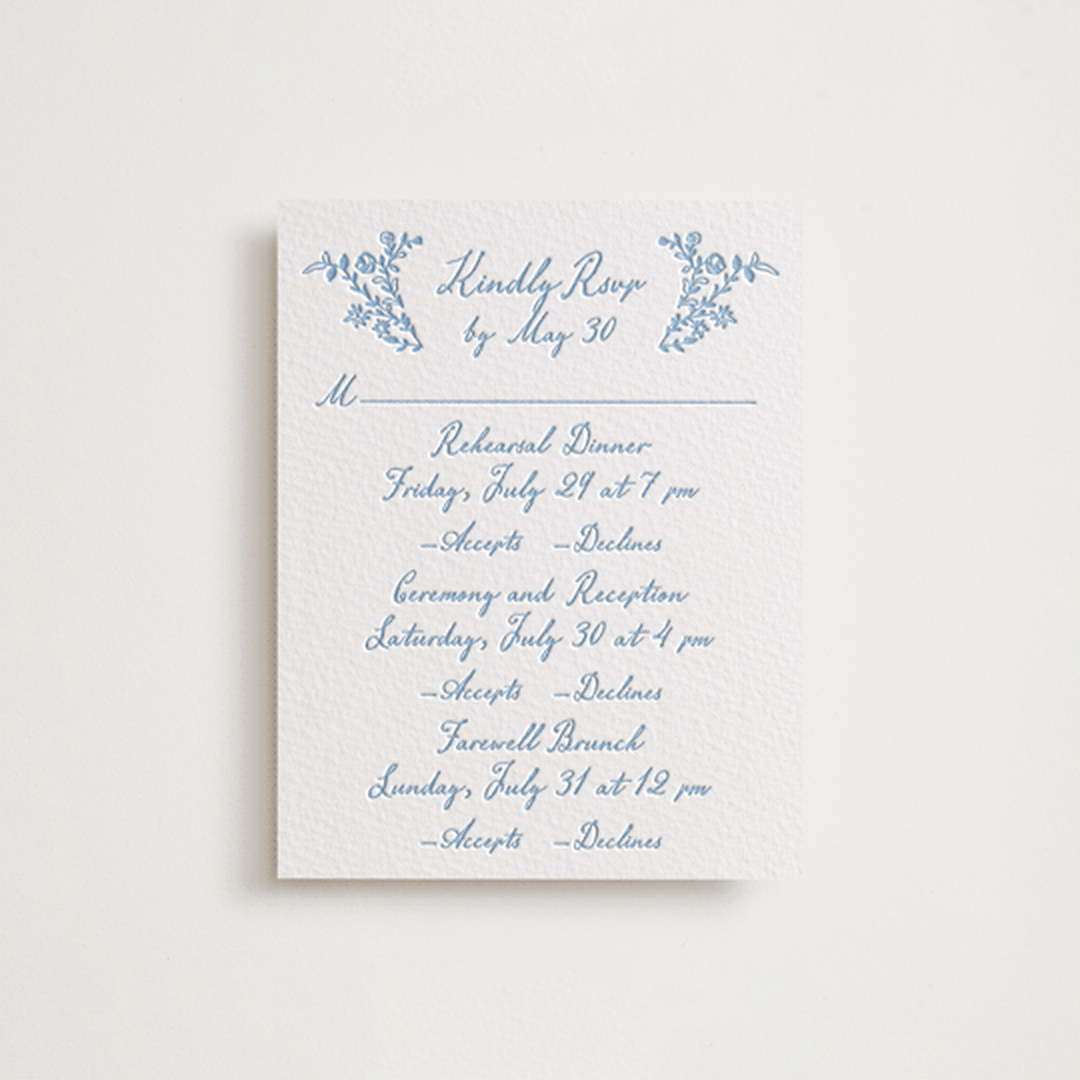 Kindly Rsvp
by May 30
M
Rehearsal Dinner
Friday, July 29 at 7 pm
Accepts Declines
Ceremony and Reception
Saturday, July 30 at 4 pm
Accepts Declines
Farewell Brunch
Sunday, July 31 at 12 pm
Accepts Declines